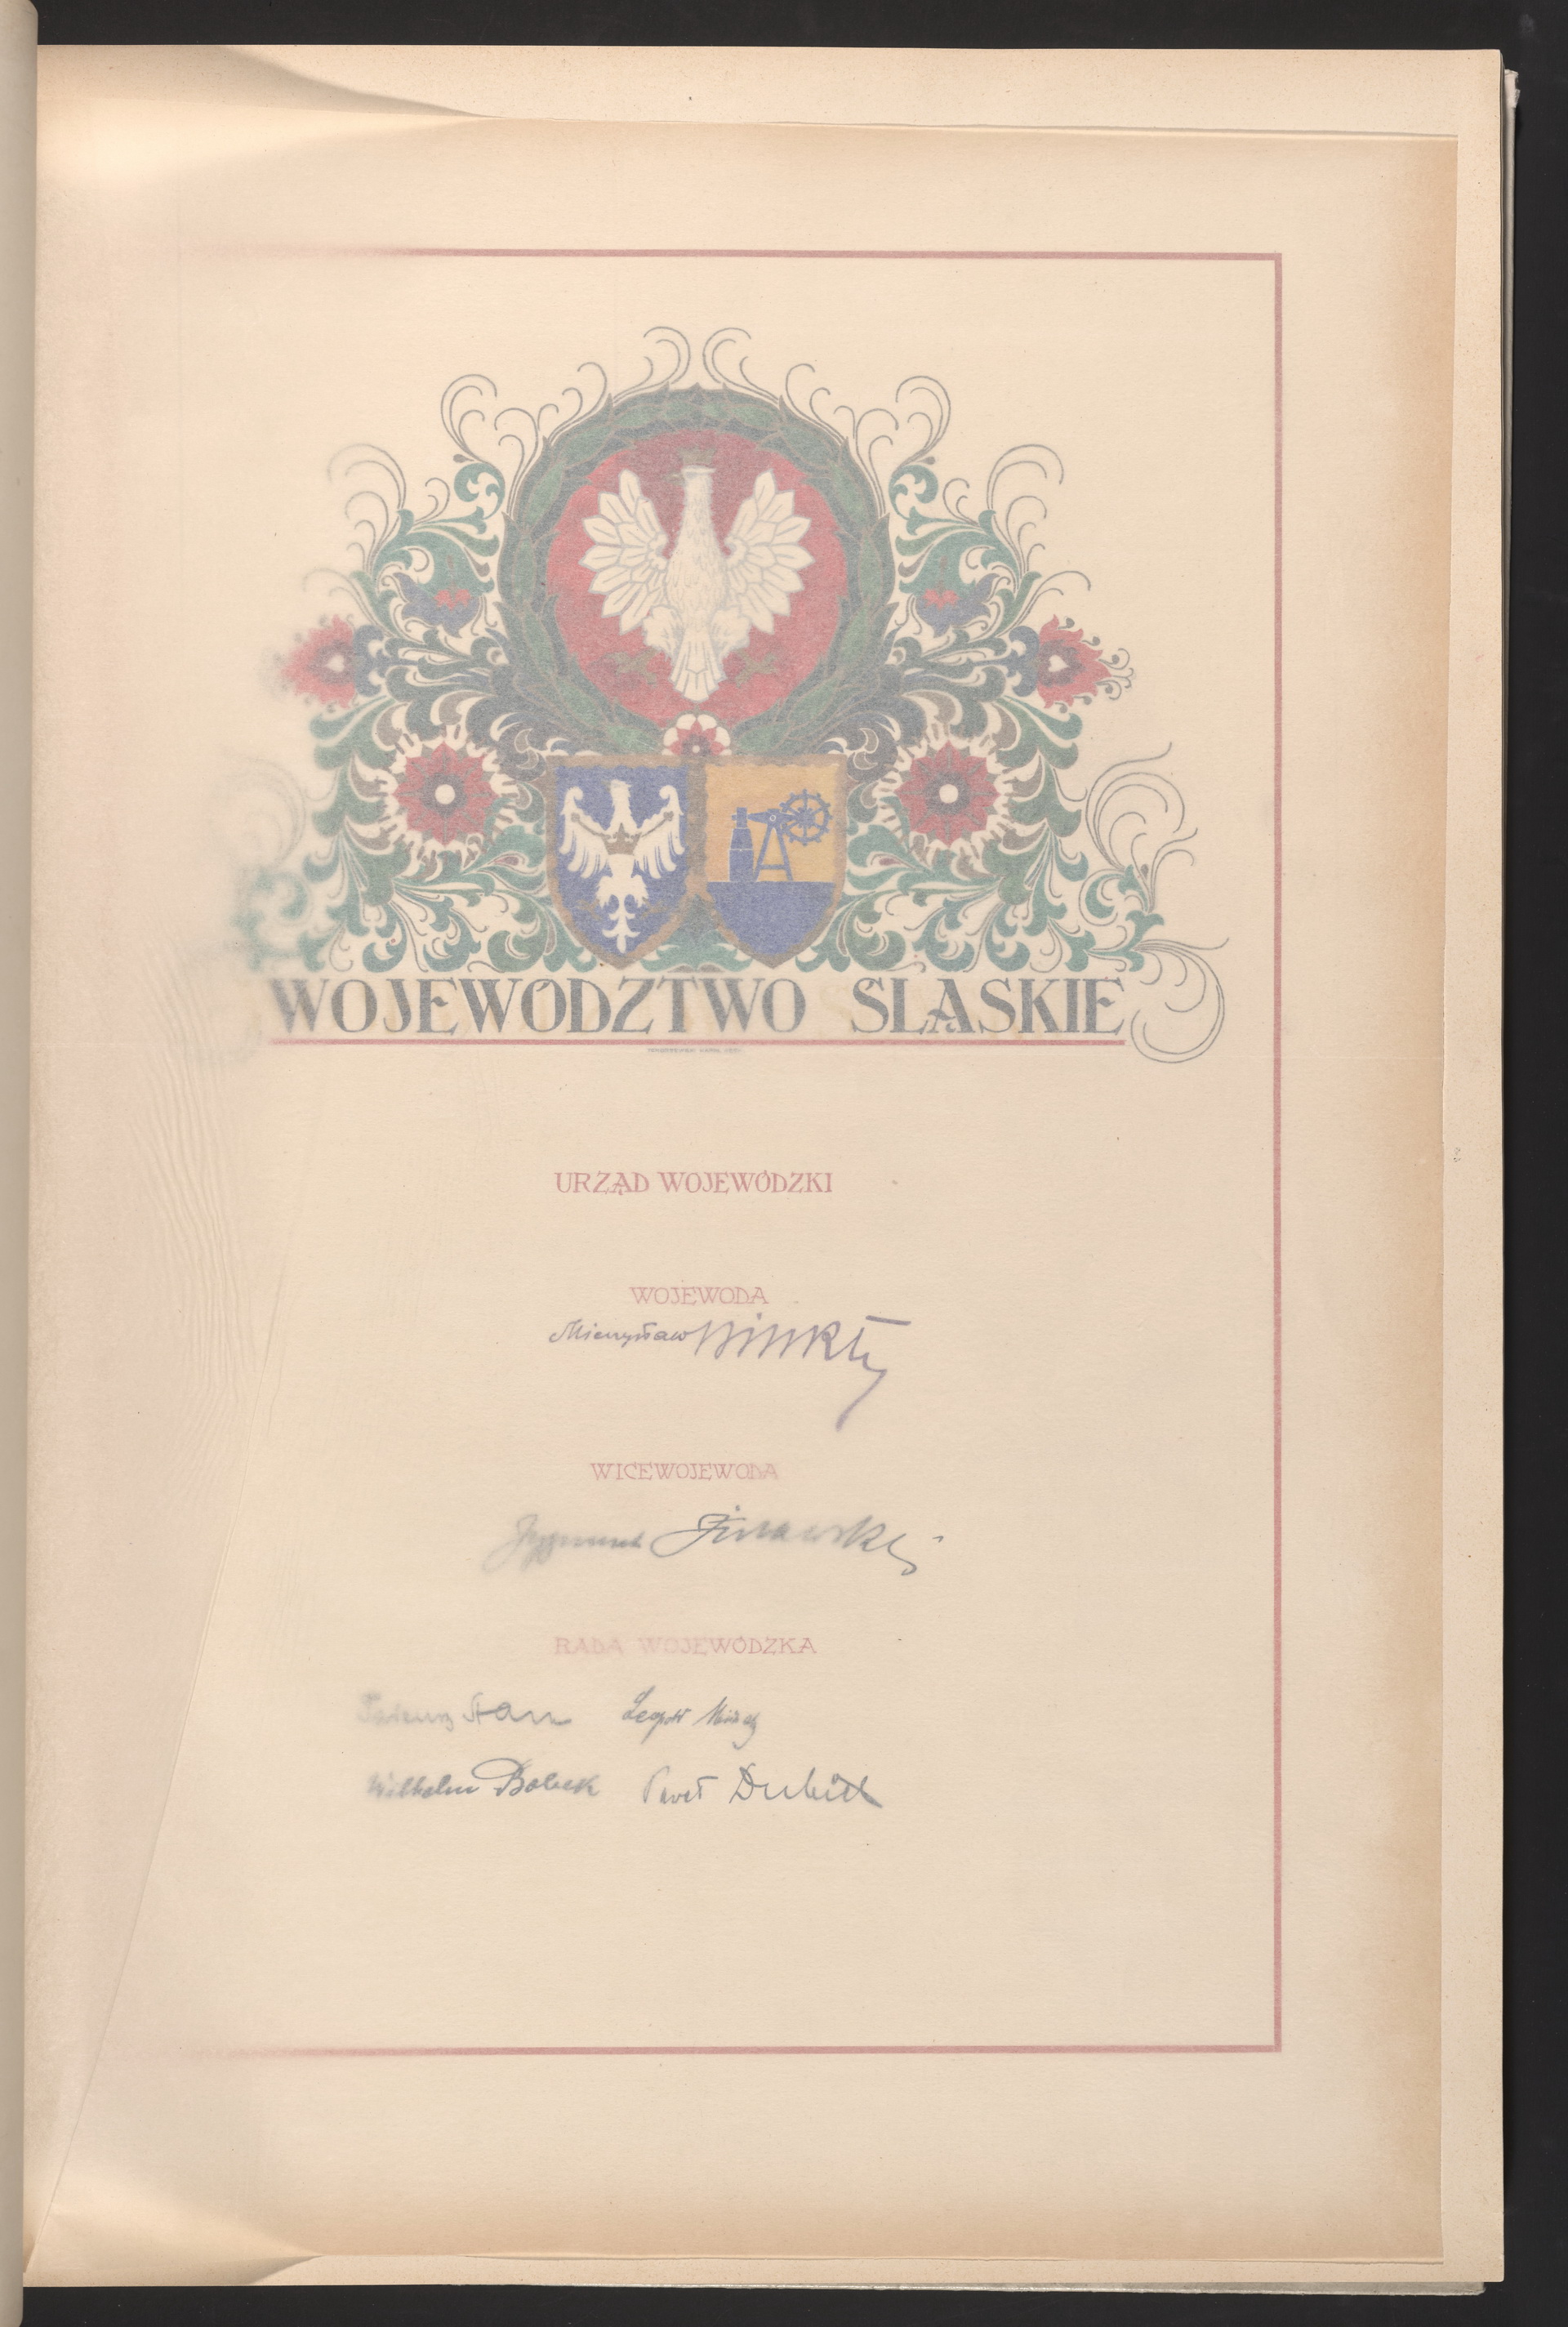 WOJEWÓDZTWO ŚLĄSKIE
URZĄD WOJEWÓDZKI
WOJEWODA
Mieczysław Bilski
WICEWOJEWODA
Zygmunt Żurawski
RADA WOJEWÓDZKA
Tadeusz
Wilhelm Bobek Paweł Dubiel